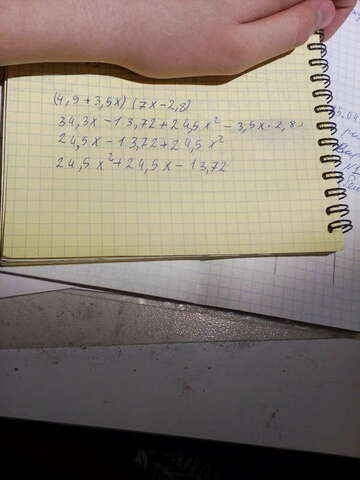 (4,9+3,5x)(7x-2,8)
34,3x-13,72+24,5x²-3,5x·2,8
24,5x-13,72+24,5x²
24,5x²+24,5x-13,72